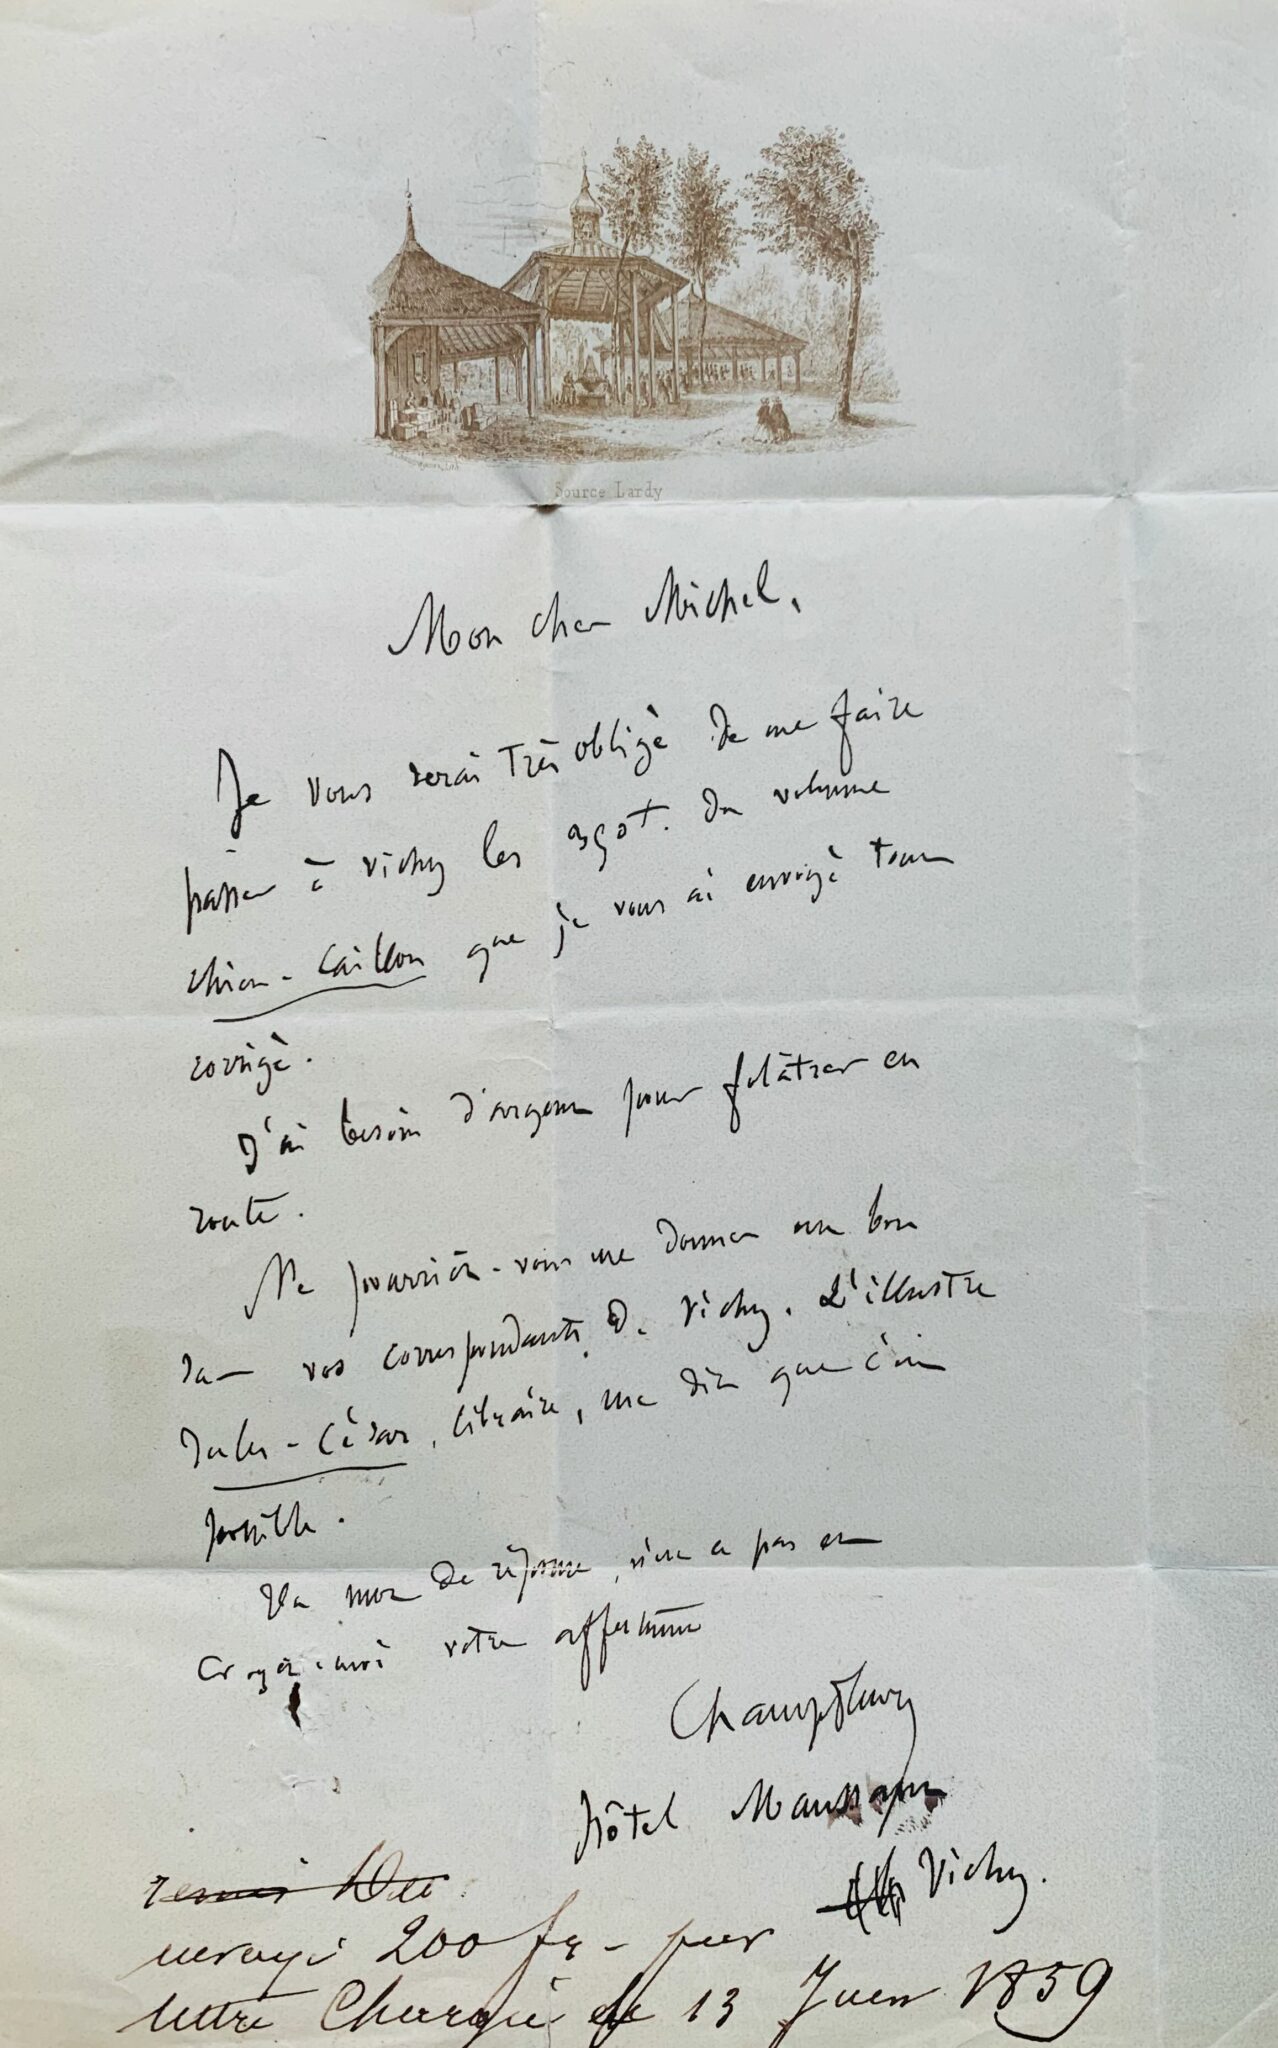 Source Lardy
Mon cher Michel,
Je vous serai très obligé de me faire
passer à Vichy les du volume
chien-Caillou que je vous ai envoyé tout
corrigé.
J'ai besoin d'argent pour folâtrer en
route.
Ne pourriez-vous me donner un bon
sur vos correspondants de Vichy. L'illustre
Jules-César, libraire, me dit que c'est
possible.
Un mot de réponse, n'est ce pas et
croyez-moi votre affectionné
Champfleury
hôtel
Vichy.
remis
envoyé 200 fr - par
lettre Chargée le 13 Juin 1859